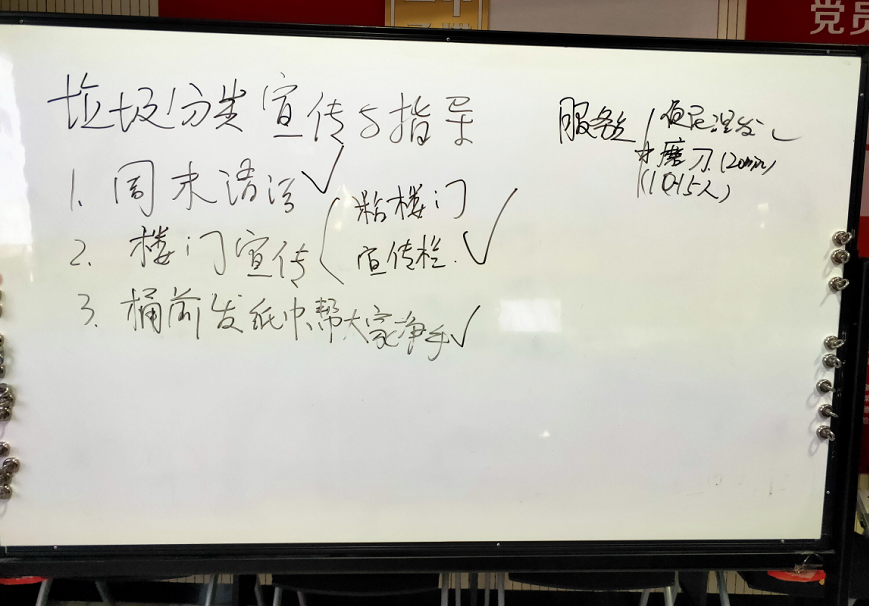 党员
垃圾分类宣传与指导
1. 周末清洁 √
2. 楼门宣传 ( 粘楼门
宣传栏. √
3. 桶前发纸巾,帮大家净手 √
服务
便民理发 √
磨刀 (20min)
(10-15人)